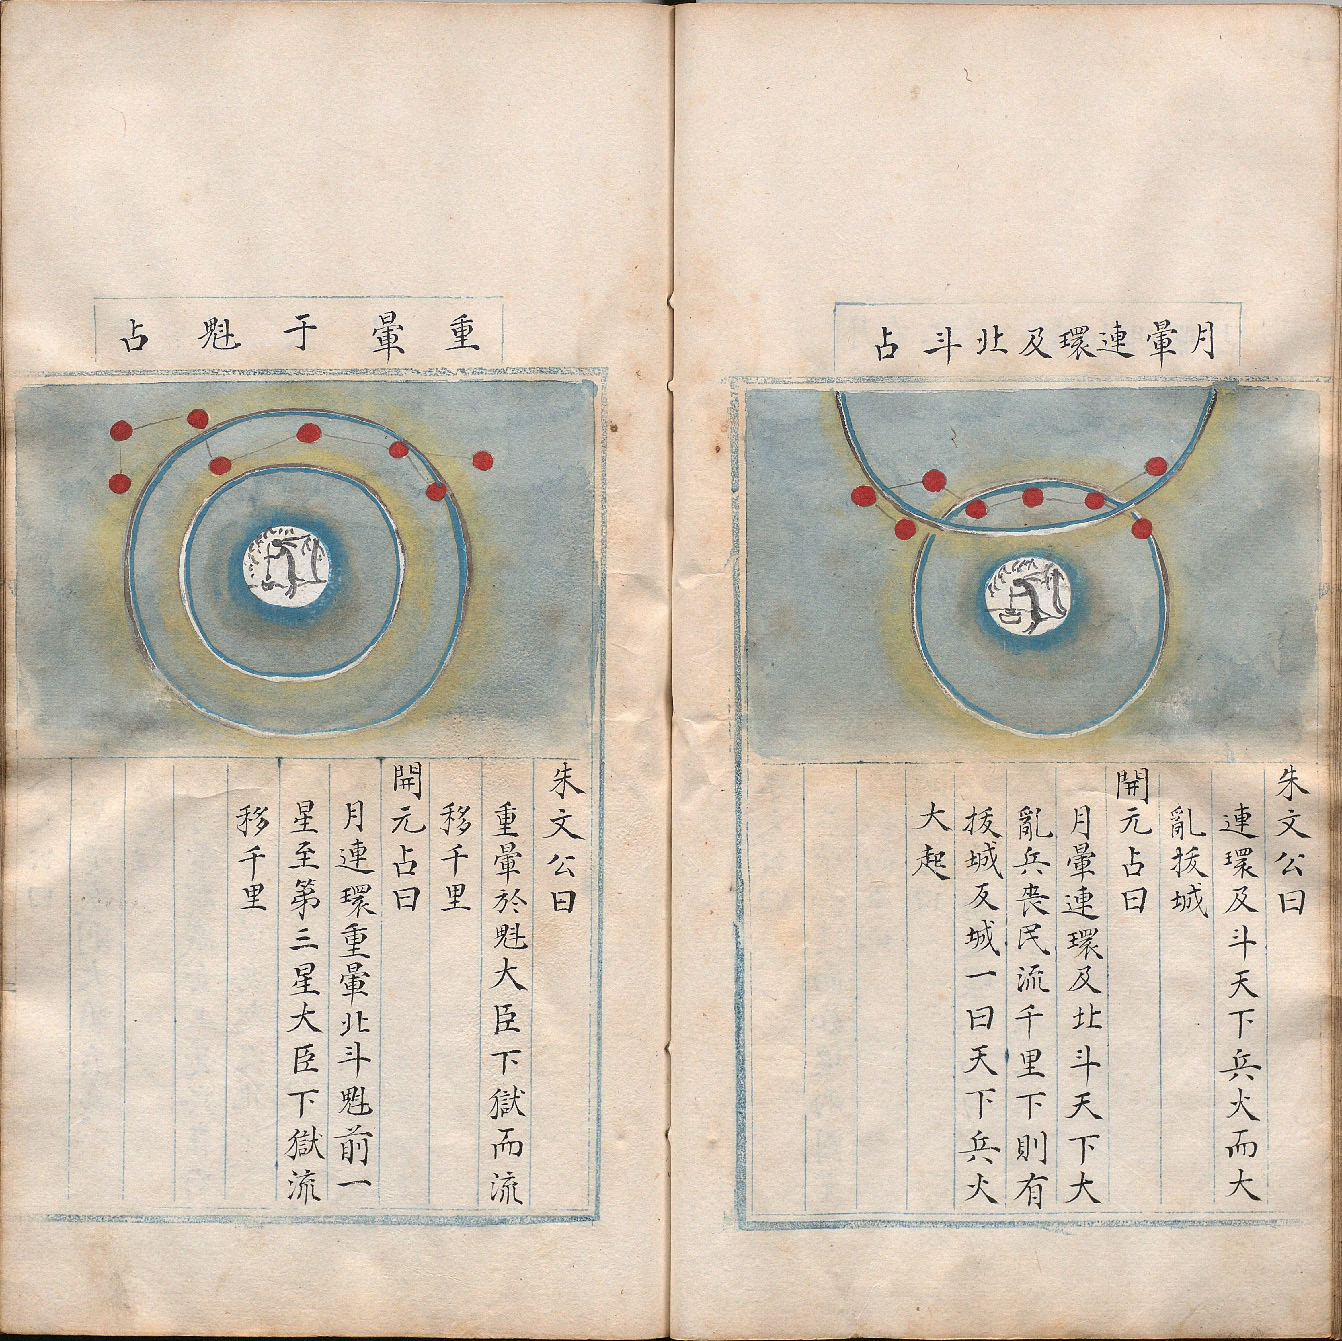 月暈連環及北斗占
朱文公曰
連環及斗天下兵火而大
亂拔城
開元占曰
月暈連環及北斗天下大
亂兵喪民流千里下則有
拔城反城一曰天下兵火
大起
重暈于魁占
朱文公曰
重暈於魁大臣下獄而流
移千里
開元占曰
月連環重暈北斗魁前一
星至第三星大臣下獄流
移千里